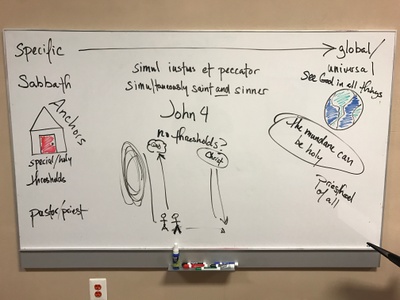 Specific
global/
universal
See God in all things
Sabbath
simul iustus et peccator
simultaneously saint and sinner
Anchors
John 4
no thresholds?
God
Christ
the mundane can
be holy
special/holy
thresholds
priesthood
of all
pastor/priest